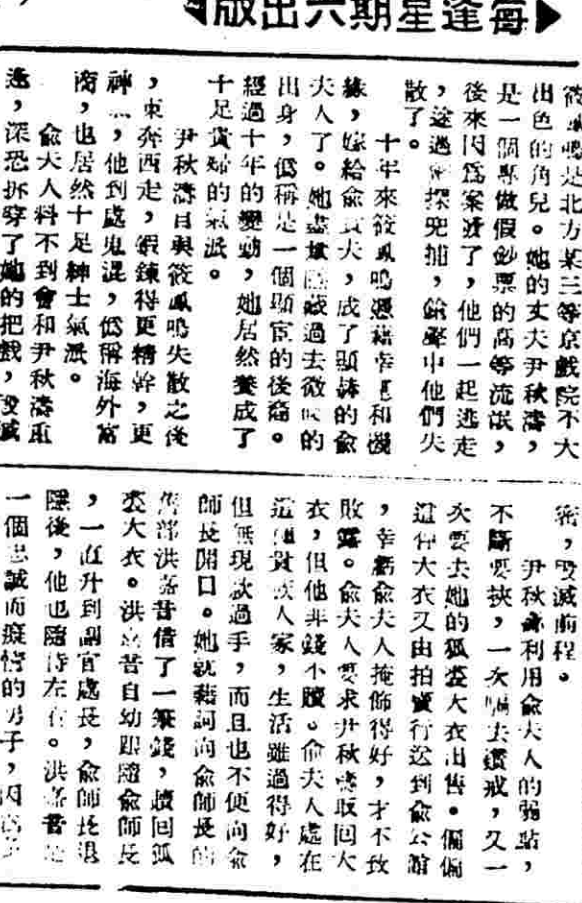 ▶每逢星期六出版◀
筱鳳鳴是北方某三等京戲院不大
出色的角兒。她的丈夫尹秋濤，
是一個專做假鈔票的高等流氓，
後來因爲案發了，他們一起逃走
，途遇密探兜捕，鎗聲中他們失
散了。
十年來筱鳳鳴憑藉幸運和機
緣，嫁給俞師夫，成了顯赫的俞
夫人了。她盡量隱藏過去微時的
出身，僞稱是一個顯宦的後裔。
經過十年的變動，她居然養成了
十足貴婦的氣派。
尹秋濤自與筱鳳鳴失散之後
，東奔西走，鍛鍊得更精幹，更
神 ，他到處鬼混，僞稱海外富
商，也居然十足紳士氣派。
俞夫人料不到會和尹秋濤重
逢，深恐拆穿了她的把戲，毀滅
密，毀滅前程。
尹秋濤利用俞夫人的弱點，
不斷要挾，一次騙去鑽戒，又一
次要去她的狐裘大衣出售。偏偏
這件大衣又由拍賣行送到俞公館
，幸虧俞夫人掩飾得好，才不致
敗露。俞夫人要求尹秋濤取回大
衣，但他非錢不贖。俞夫人處在
這種貴族人家，生活雖過得好，
但無現款過手，而且也不便向俞
師長開口。她就藉詞向俞師長的
舊部洪嘉普借了一筆錢，贖回狐
裘大衣。洪嘉普自幼跟隨俞師長
，一直升到副官處長，俞師長退
隱後，他也隨侍左右。洪嘉普是
一個忠誠而癡情的男子，因爲